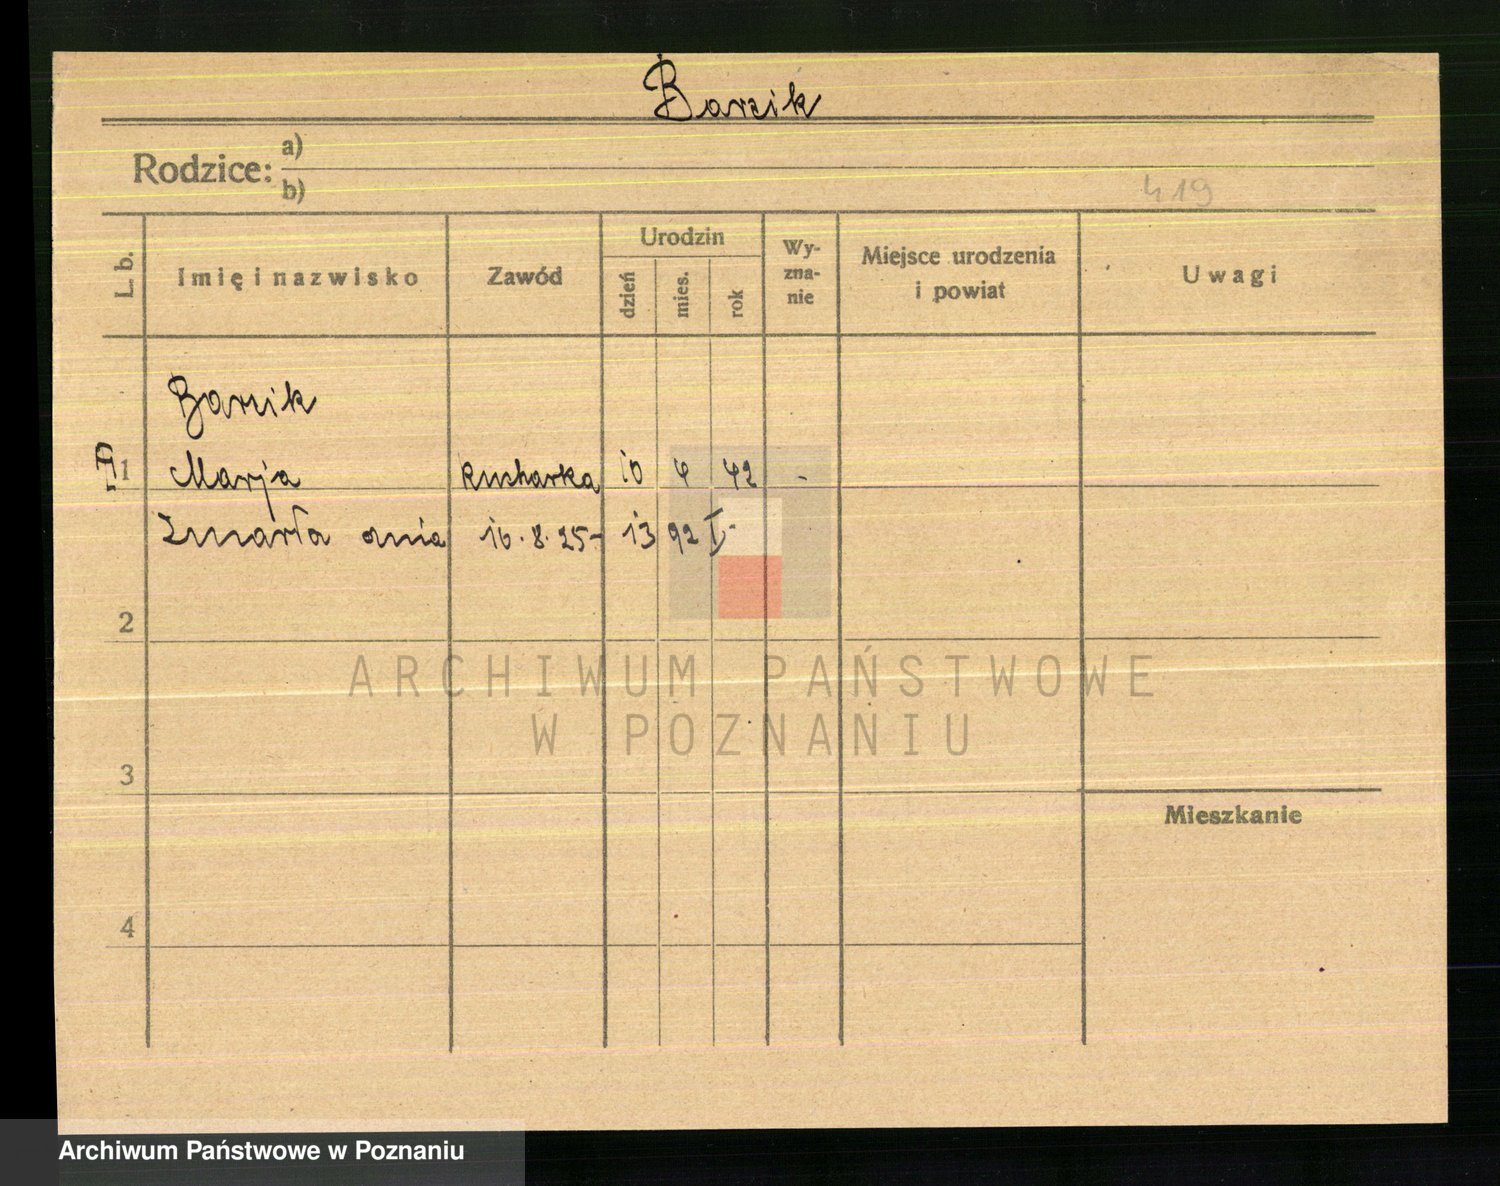 Barcik
Rodzice: a)
b)
419
L. b. Imię i nazwisko Zawód Urodzin dzień mies. rok Wy-zna-nie Miejsce urodzenia i powiat Uwagi
Barcik
1 Marja Kucharka 10 4 42 -
Zmarła dnia 16. 8. 25- 13 92 I-
2
ARCHIWUM PAŃSTWOWE
W POZNANIU
3
Mieszkanie
4
Archiwum Państwowe w Poznaniu